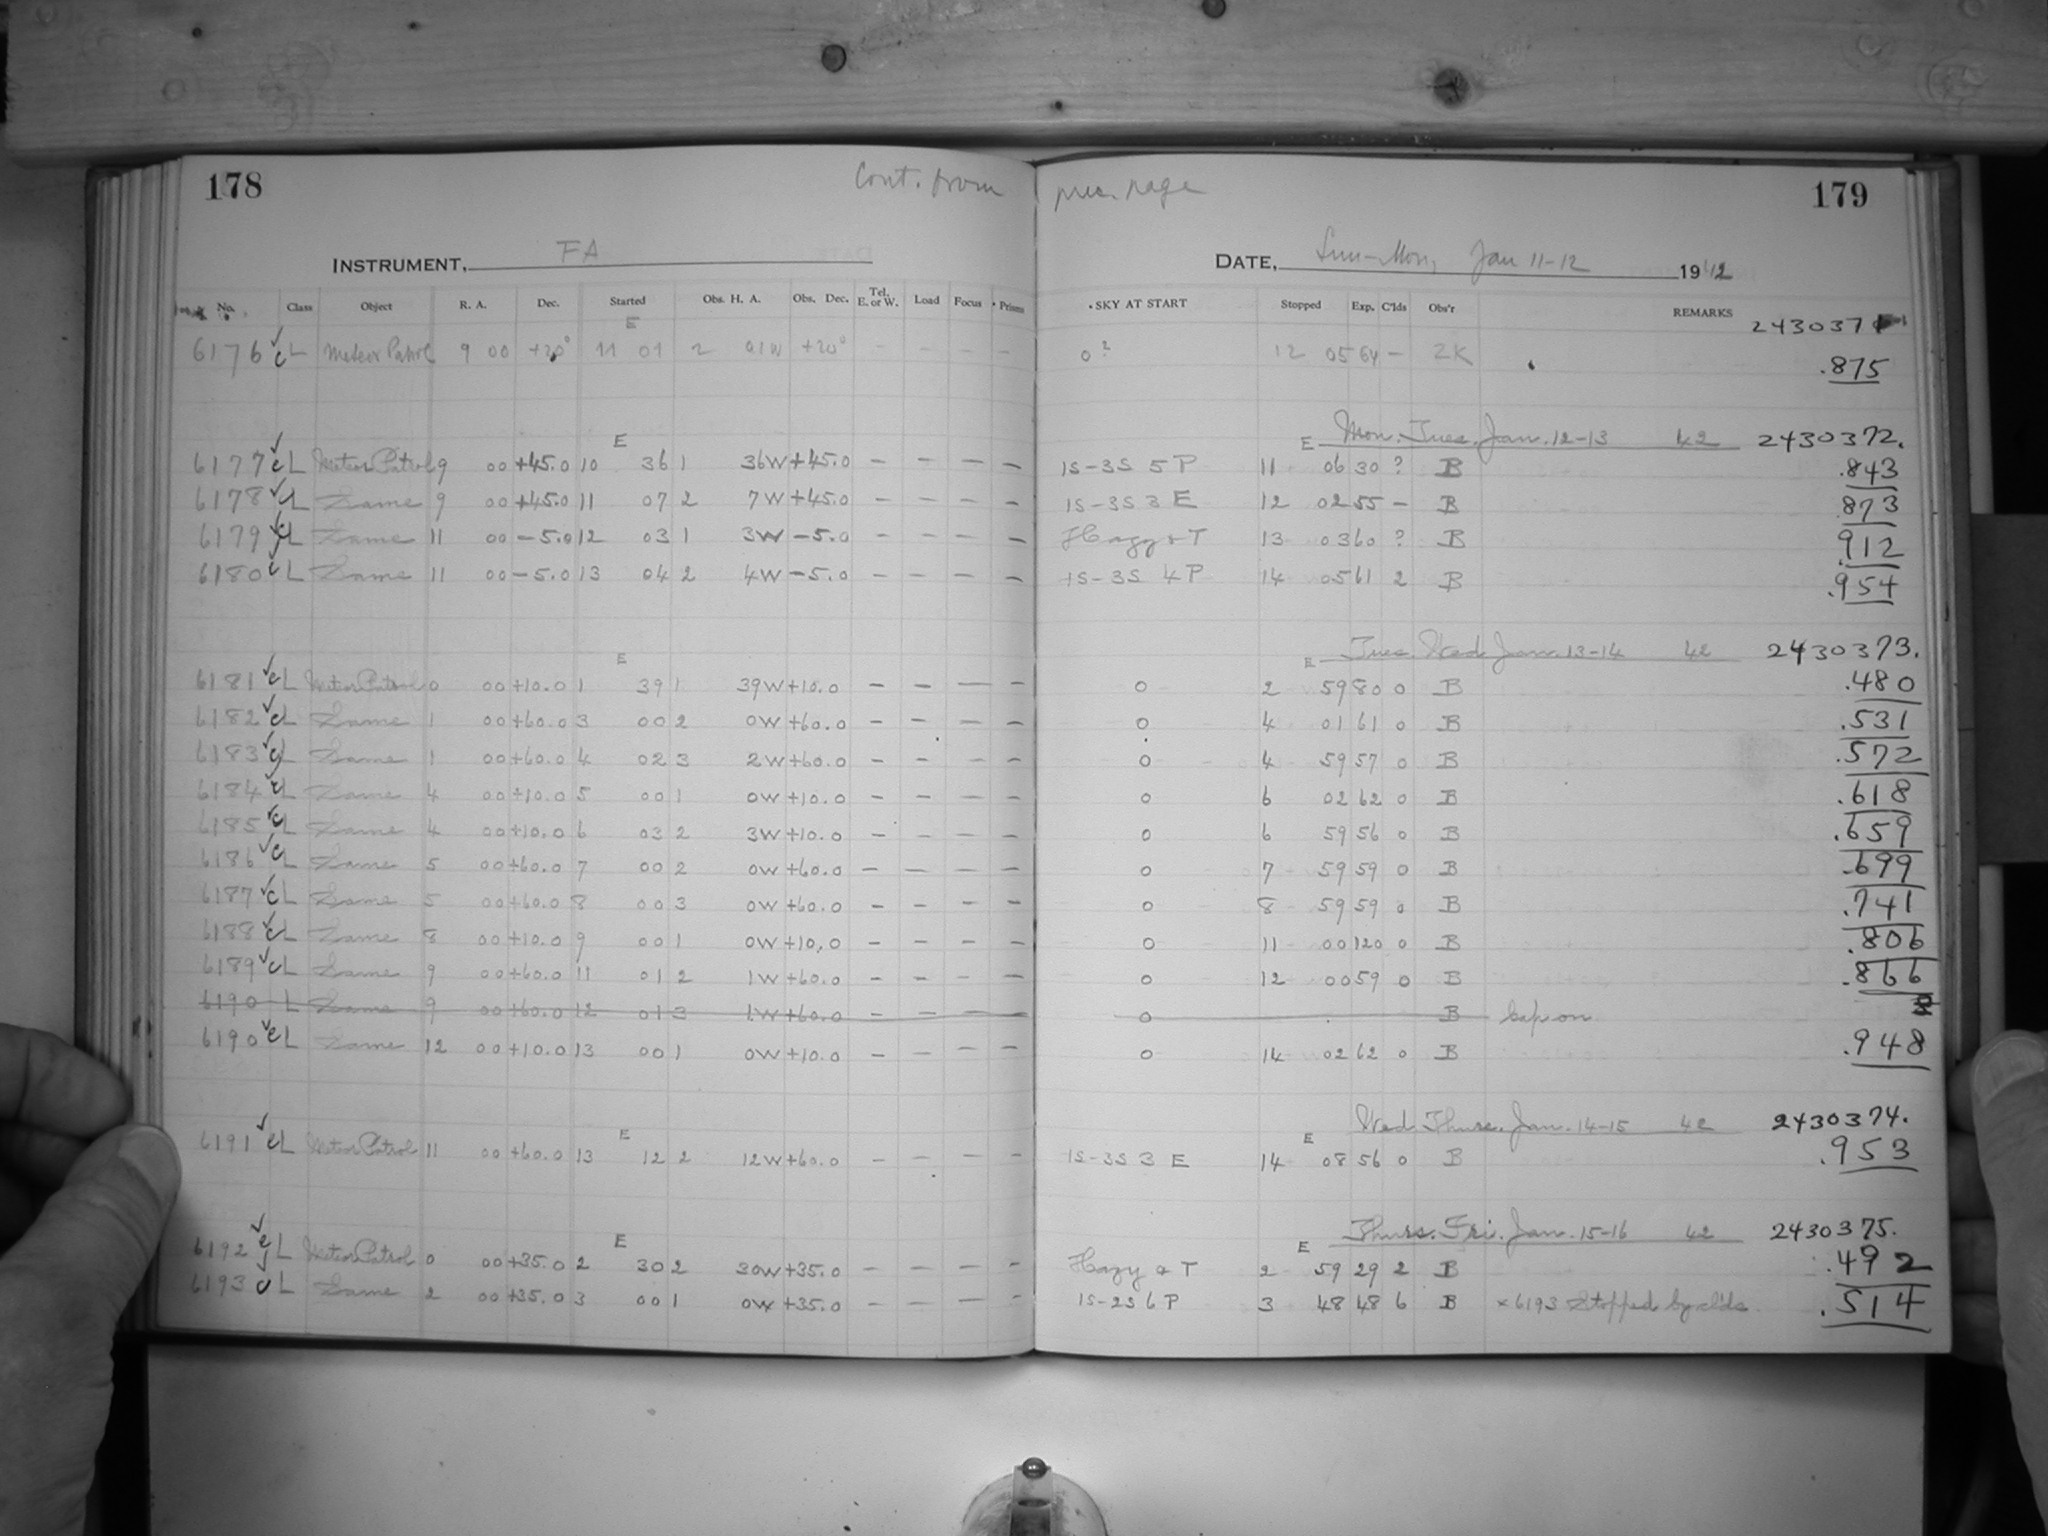 178 Cont. from prev. page 179
INSTRUMENT, FA DATE, Sun-Mon, Jan 11-12 1942
No. Class Object R. A. Dec. Started Obs. H. A. Obs. Dec. Tel. E. or W. Load Focus Prisms SKY AT START Stopped Exp. C'lds Obs'r REMARKS
E 2430371
6176 ✓ c L Meteor Patrol 9 00 +20° 11 01 2 01W +20° - - - - 0² 12 05 64 - ZK .875
E E Mon. Tues. Jan. 12-13 42 2430372.
6177 ✓ c L Meteor Patrol 9 00 +45.0 10 36 1 36W +45.0 - - - - 1S-3S 5 P 11 06 30 ? B .843
6178 ✓ c L Same 9 00 +45.0 11 07 2 7W +45.0 - - - - 1S-3S 3 E 12 02 55 - B .873
6179 ✓ c L Same 11 00 -5.0 12 03 1 3W -5.0 - - - - Hazy & T 13 03 60 ? B .912
6180 ✓ c L Same 11 00 -5.0 13 04 2 4W -5.0 - - - - 1S-3S 4 P 14 05 61 2 B .954
E E Tues. Wed. Jan. 13-14 42 2430373.
6181 ✓ c L Meteor Patrol 0 00 +10.0 1 39 1 39W +10.0 - - - - 0 2 59 80 0 B .480
6182 ✓ c L Same 1 00 +60.0 3 00 2 0W +60.0 - - - - 0 4 01 61 0 B .531
6183 ✓ c L Same 1 00 +60.0 4 02 3 2W +60.0 - - - - 0 4 59 57 0 B .572
6184 ✓ c L Same 4 00 +10.0 5 00 1 0W +10.0 - - - - 0 6 02 62 0 B .618
6185 ✓ c L Same 4 00 +10.0 6 03 2 3W +10.0 - - - - 0 6 59 56 0 B .659
6186 ✓ c L Same 5 00 +60.0 7 00 2 0W +60.0 - - - - 0 7 59 59 0 B .699
6187 ✓ c L Same 5 00 +60.0 8 00 3 0W +60.0 - - - - 0 8 59 59 0 B .741
6188 ✓ c L Same 8 00 +10.0 9 00 1 0W +10.0 - - - - 0 11 00 120 0 B .806
6189 ✓ c L Same 9 00 +60.0 11 01 2 1W +60.0 - - - - 0 12 00 59 0 B .866
6190 L Same 9 00 +60.0 12 01 3 1W +60.0 - - - - 0 B Cap on
6190 ✓ c L Same 12 00 +10.0 13 00 1 0W +10.0 - - - - 0 14 02 62 0 B .948
E E Wed. Thurs. Jan. 14-15 42 2430374.
6191 ✓ c L Meteor Patrol 11 00 +60.0 13 12 2 12W +60.0 - - - - 1S-3S 3 E 14 08 56 0 B .953
E E Thurs. Fri. Jan. 15-16 42 2430375.
6192 ✓ c L Meteor Patrol 0 00 +35.0 2 30 2 30W +35.0 - - - - Hazy & T 2 59 29 2 B .492
6193 c L Same 2 00 +35.0 3 00 1 0W +35.0 - - - - 1S-2S 6 P 3 48 48 6 B ×6193 Stopped by clds. .514